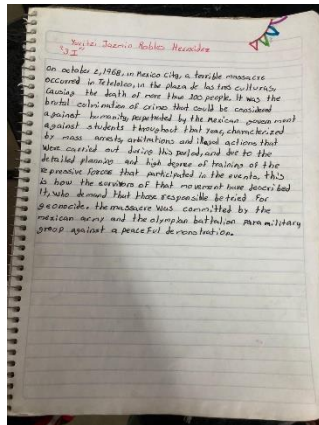 Yaritzi Jazmin Robles Hernandez
"3 I"
On october 2, 1968, in Mexico City, a terrible massacre
occurred in Tlatelolco, in the plaza de las tres culturas,
causing the death of more than 200 people. It was the
brutal culmination of crimes that could be considered
against humanity perpetrated by the mexican government
against students throughout that year, characterized
by mass arrests, arbitrations and illegal actions that
were carried out during this period, and due to the
detailed planning and high degree of training of the
repressive forces that participated in the events, this
is how the survivors of that movement have described
it, who demand that those responsible be tried for
genocide. the massacre was committed by the
mexican army and the olympian battalion paramilitary
group against a peaceful demonstration.